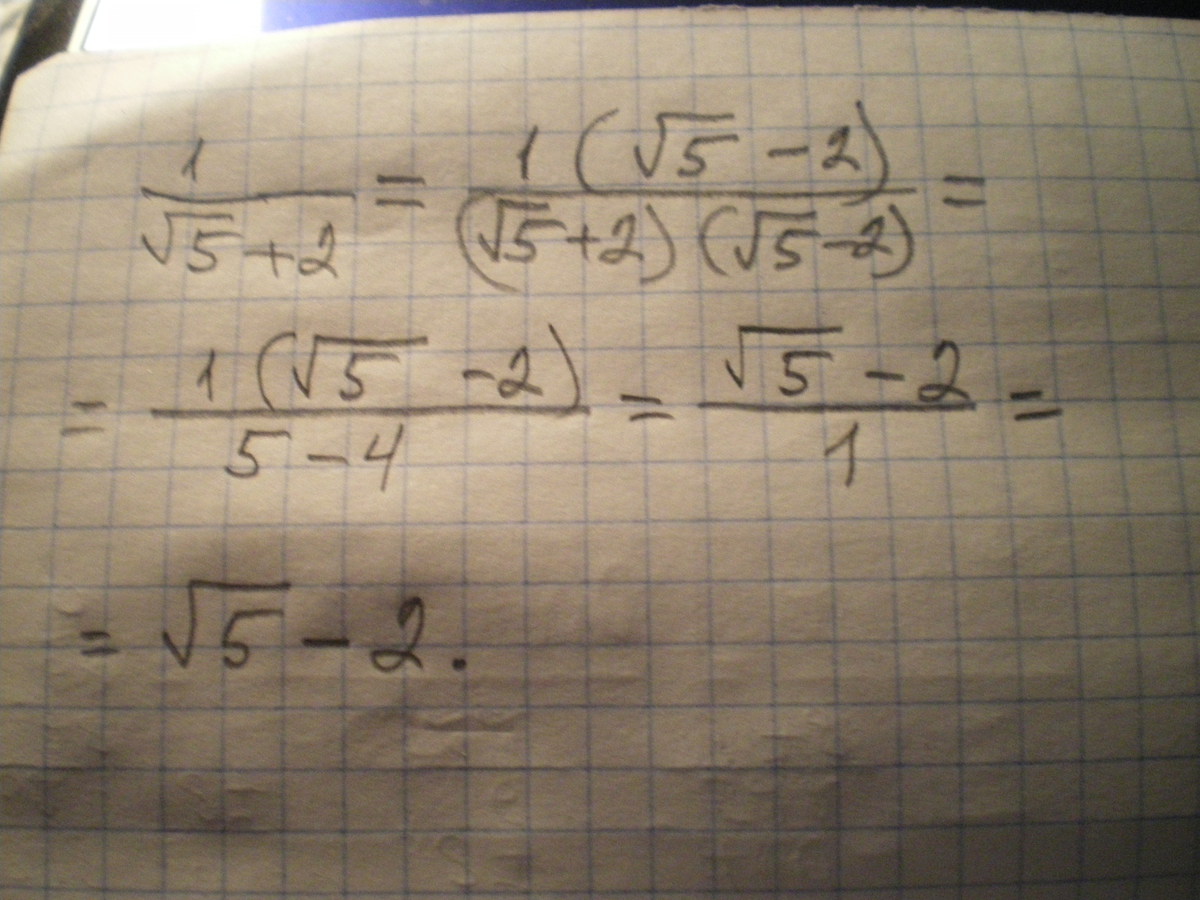 1/(√5+2) = 1(√5 -2)/((√5+2)(√5-2)) =
= 1(√5 -2)/(5-4) = (√5 - 2)/1 =
= √5 - 2.